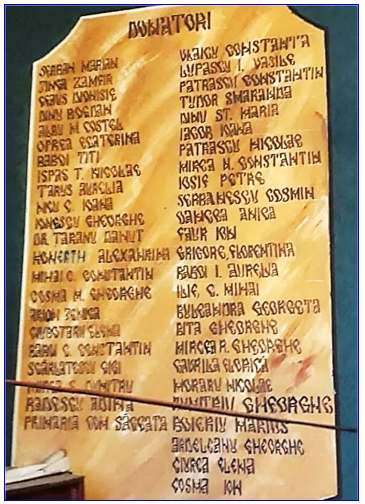 DONATORI
SERBAN MARIAN
JINGA ZAMFIR
DINU BOGDAN
ALBU M. COSTEL
OPREA ECATERINA
BABOI TITI
ISPAS T. NICOLAE
TARUS AURELIA
NICU C. IOANA
IONESCU GHEORGHE
DR. TARANU DANUT
HOMERTH ALEXANDRINA
MIHAI C. CONSTANTIN
COSMA N. GHEORGHE
CIUBOTARU ELENA
BABOI C. CONSTANTIN
SCARLATESCU GIGI
DUMITRU
RADESCU ADINA
PRIMARIA COM SĂCEATA
VLAICU CONSTANTA
LUPASCU I. VASILE
PATRASCU CONSTANTIN
TUDOR SMARANDA
DINU ST. MARIA
IACOB IOANA
PATRASCU NICOLAE
MIREA N. CONSTANTIN
IOSIF PETRE
SERBANESCU COSMIN
OANCEA ANICA
FAUR ION
GRIGORE FLORENTINA
BABOI I. AURELIA
ILIE C. MIHAI
BULEANDRA GEORGETA
BITA GHEORGHE
MIRCEA R. GHEORGHE
GAVRILA GLORICA
MORARU NICOLAE
DUMITRU GHEORGHE
BOIERIU MARIUS
ARDELEANU GHEORGHE
CIUREA ELENA
COSMA ION